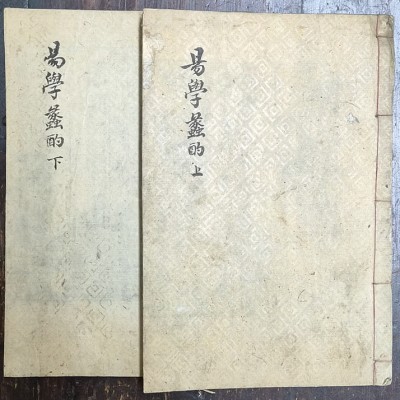 易學蠡酌 上
易學蠡酌 下